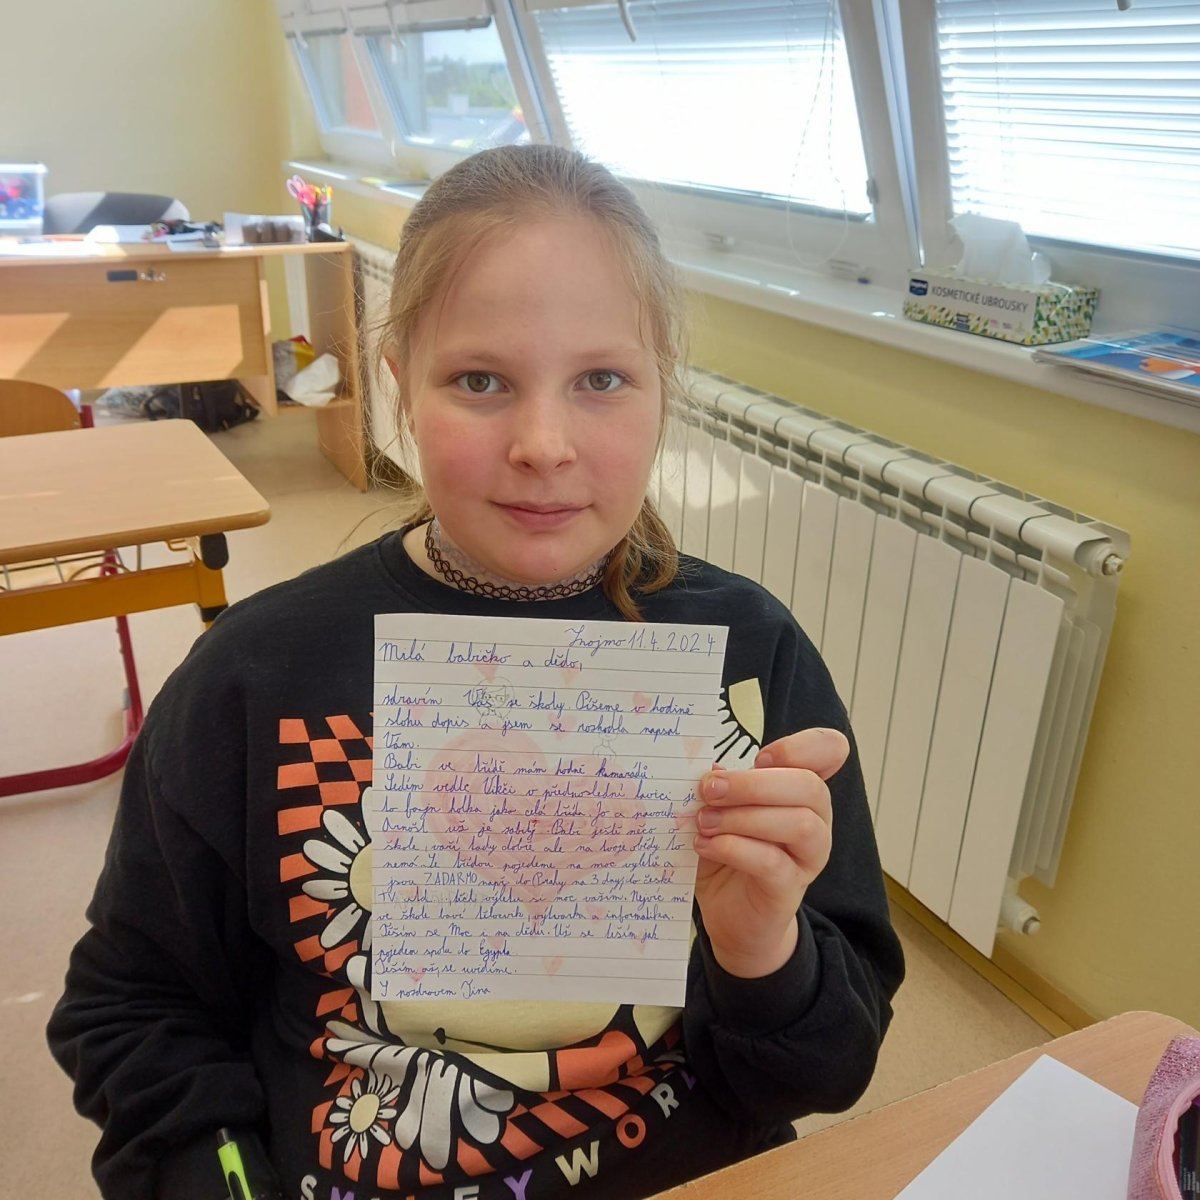 KOSMETICKÉ UBROUSKY
Znojmo 11.4. 2024
Milá babičko a dědo,
zdravím Vás ze školy. Píšeme v hodině
slohu dopis a jsem se rozhodla napsat
Vám.
Babi ve třídě mám hodně kamarádů.
Sedím vedle Vikči v předposlední lavici je
to fajn holka jako celá třída. Jo a pavouk
Arnošt už je sabitý. Babi ještě něco o
škole, vaří tady dobře ale na tvoje obědy to
nemá. Se třídou pojedeme na moc výletů a
jsou ZADARMO např. do Prahy na 3 dny, do české
TV atd. výletu si moc vážím. Nejvíc mě
ve škole baví tělocvik, výtvarka a informatika.
Těším se Moc i na dědu. Už se těším jak
pojedem spolu do Egypta.
Těším až se uvidíme.
S pozdravem Jina
SMILEY WORLD